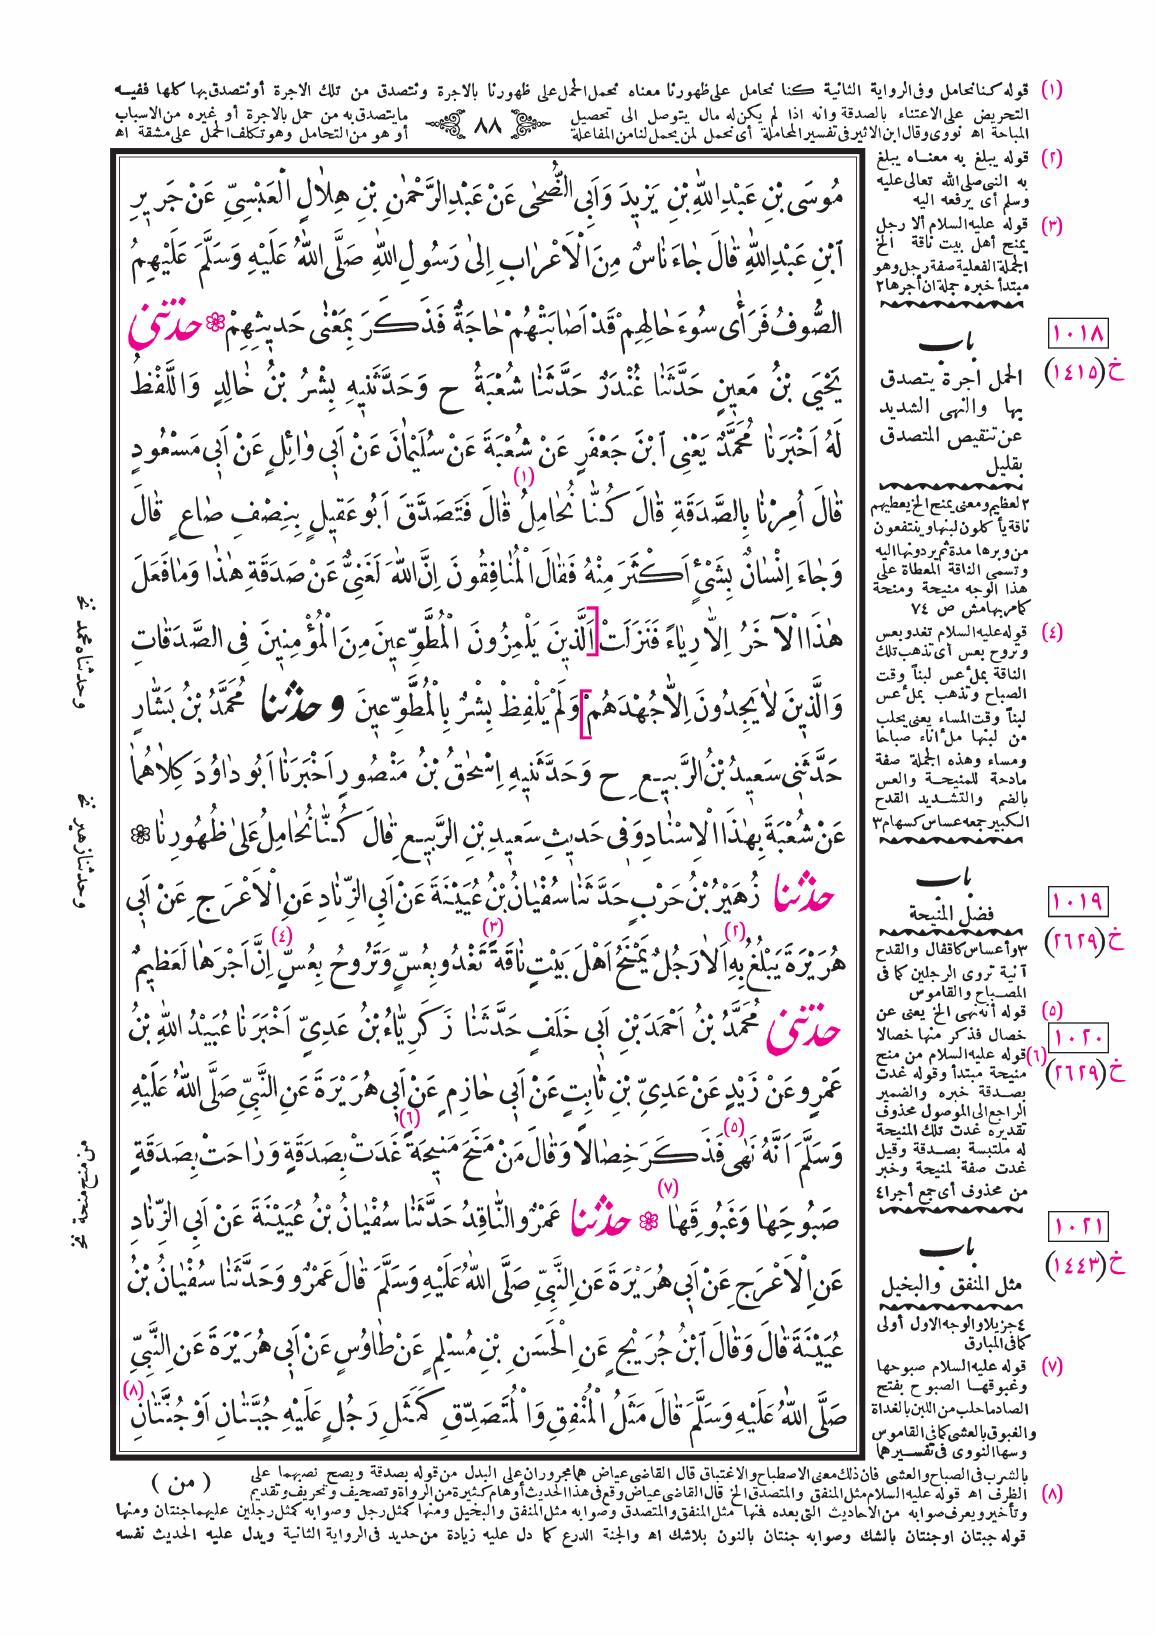 (١) قوله كنا نحامل وفى الرواية الثانية كنا نحامل على ظهورنا معناه نحمل الحمل على ظهورنا بالاجرة ونتصدق من تلك الاجرة أو نتصدق بها كلها ففيه
التحريض على الاعتناء بالصدقة وانه اذا لم يكن له مال يتوصل الى تحصيل ما يتصدق به من حمل بالاجرة أو غيره من الاسباب
المباحة اه نووى وقال ابن الاثير فى تفسير المحاملة أى نحمل لمن يحمل لنا من المفاعلة أو هو من التحامل وهو تكلف الحمل على مشقة اه
٨٨
مُوسَى بْنِ عَبْدِ اللهِ بْنِ يَزِيدَ وَاَبِى الضُّحٰى عَنْ عَبْدِ الرَّحْمٰنِ بْنِ هِلَالٍ الْعَبْسِىِّ عَنْ جَرِيرِ
ابْنِ عَبْدِ اللهِ قَالَ جَاءَ نَاسٌ مِنَ الْاَعْرَابِ اِلىٰ رَسُولِ اللهِ صَلَّى اللهُ عَلَيْهِ وَسَلَّمَ عَلَيْهِمُ
الصُّوفُ فَرَأٰى سُوءَ حَالِهِمْ قَدْ اَصَابَتْهُمْ حَاجَةٌ فَذَكَرَ بِمَعْنٰى حَدِيثِهِمْ ❁ حَدَّثَنِى
يَحْيَى بْنُ مَعِينٍ حَدَّثَنَا غُنْدَرٌ حَدَّثَنَا شُعْبَةُ ح وَحَدَّثَنِيهِ بِشْرُ بْنُ خَالِدٍ وَاللَّفْظُ
لَهُ اَخْبَرَنَا مُحَمَّدٌ يَعْنِى ابْنَ جَعْفَرٍ عَنْ شُعْبَةَ عَنْ سُلَيْمَانَ عَنْ اَبِى وَائِلٍ عَنْ اَبِى مَسْعُودٍ
قَالَ اُمِرْنَا بِالصَّدَقَةِ قَالَ كُنَّا نُحَامِلُ (١) قَالَ فَتَصَدَّقَ اَبُو عَقِيلٍ بِنِصْفِ صَاعٍ قَالَ
وَجَاءَ اِنْسَانٌ بِشَىْءٍ اَكْثَرَ مِنْهُ فَقَالَ الْمُنَافِقُونَ اِنَّ اللهَ لَغَنِىٌّ عَنْ صَدَقَةِ هٰذَا وَمَا فَعَلَ
هٰذَا الْآخَرُ اِلَّا رِيَاءً فَنَزَلَتْ [اَلَّذِينَ يَلْمِزُونَ الْمُطَّوِّعِينَ مِنَ الْمُؤْمِنِينَ فِى الصَّدَقَاتِ
وَالَّذِينَ لَا يَجِدُونَ اِلَّا جُهْدَهُمْ] وَلَمْ يَلْفِظْ بِشْرٌ بِالْمُطَّوِّعِينَ وحَدَّثَنَا مُحَمَّدُ بْنُ بَشَّارٍ
حَدَّثَنِى سَعِيدُ بْنُ الرَّبِيعِ ح وَحَدَّثَنِيهِ اِسْحٰقُ بْنُ مَنْصُورٍ اَخْبَرَنَا اَبُو دَاوُدَ كِلَاهُمَا
عَنْ شُعْبَةَ بِهٰذَا الْاِسْنَادِ وَفِى حَدِيثِ سَعِيدِ بْنِ الرَّبِيعِ قَالَ كُنَّا نُحَامِلُ عَلىٰ ظُهُورِنَا ❁
حَدَّثَنَا زُهَيْرُ بْنُ حَرْبٍ حَدَّثَنَا سُفْيَانُ بْنُ عُيَيْنَةَ عَنْ اَبِى الزِّنَادِ عَنِ الْاَعْرَجِ عَنْ اَبِى
هُرَيْرَةَ يَبْلُغُ بِهِ (٢) اَلَا رَجُلٌ يَمْنَحُ اَهْلَ بَيْتٍ نَاقَةً (٣) تَغْدُو بِعُسٍّ وَتَرُوحُ بِعُسٍّ (٤) اِنَّ اَجْرَهَا لَعَظِيمٌ
حَدَّثَنِى مُحَمَّدُ بْنُ اَحْمَدَ بْنِ اَبِى خَلَفٍ حَدَّثَنَا زَكَرِيَّاءُ بْنُ عَدِىٍّ اَخْبَرَنَا عُبَيْدُ اللهِ بْنُ
عَمْرٍو عَنْ زَيْدٍ عَنْ عَدِىِّ بْنِ ثَابِتٍ عَنْ اَبِى حَازِمٍ عَنْ اَبِى هُرَيْرَةَ عَنِ النَّبِىِّ صَلَّى اللهُ عَلَيْهِ
وَسَلَّمَ اَنَّهُ نَهٰى (٥) فَذَكَرَ خِصَالًا وَقَالَ مَنْ مَنَحَ مَنِيحَةً (٦) غَدَتْ بِصَدَقَةٍ وَرَاحَتْ بِصَدَقَةٍ
صَبُوحِهَا وَغَبُوقِهَا (٧) ❁ حَدَّثَنَا عَمْرٌو النَّاقِدُ حَدَّثَنَا سُفْيَانُ بْنُ عُيَيْنَةَ عَنْ اَبِى الزِّنَادِ
عَنِ الْاَعْرَجِ عَنْ اَبِى هُرَيْرَةَ عَنِ النَّبِىِّ صَلَّى اللهُ عَلَيْهِ وَسَلَّمَ قَالَ عَمْرٌو وَحَدَّثَنَا سُفْيَانُ بْنُ
عُيَيْنَةَ قَالَ وَقَالَ ابْنُ جُرَيْجٍ عَنِ الْحَسَنِ بْنِ مُسْلِمٍ عَنْ طَاوُسٍ عَنْ اَبِى هُرَيْرَةَ عَنِ النَّبِىِّ
صَلَّى اللهُ عَلَيْهِ وَسَلَّمَ قَالَ مَثَلُ الْمُنْفِقِ وَالْمُتَصَدِّقِ كَمَثَلِ رَجُلٍ عَلَيْهِ جُبَّتَانِ اَوْ جُنَّتَانِ (٨)
(٢) قوله يبلغ به معناه يبلغ
به النبى صلى الله تعالى عليه
وسلم أى يرفعه اليه
(٣) قوله عليه السلام ألا رجل
يمنح أهل بيت ناقة الخ
الجملة الفعلية صفة رجل وهو
مبتدأ خبره جملة ان أجرها ٢
١٠١٨
خ (١٤١٥)
باب
الحمل اجرة يتصدق
بها والنهى الشديد
عن تنقيص المتصدق
بقليل
٢ لعظيم ومعنى يمنح الخ يعطيهم
ناقة يأكلون لبنها وينتفعون
من وبرها مدة ثم يردونها اليه
وتسمى الناقة المعطاة على
هذا الوجه منيحة ومنحة
كما مر بهامش ص ٧٤
(٤) قوله عليه السلام تغدو بعس
وتروح بعس أى تذهب تلك
الناقة بملء عس لبناً وقت
الصباح وتذهب بملء عس
لبناً وقت المساء يعنى يحلب
من لبنها ملء اناء صباحا
ومساء وهذه الجملة صفة
مادحة للمنيحة والعس
بالضم والتشديد القدح
الكبير جمعه عساس كسهام ٣
١٠١٩
خ (٢٦٢٩)
باب
فضل المنيحة
٣ وأعساس كاقفال والقدح
آنية تروى الرجلين كما فى
المصباح والقاموس
(٥) قوله أنه نهى الخ يعنى عن
خصال فذكر منها خصالا
١٠٢٠
خ (٢٦٢٩)
(٦) قوله عليه السلام من منح
منيحة مبتدأ وقوله غدت
بصدقة خبره والضمير
الراجع الى الموصول محذوف
تقديره غدت تلك المنيحة
له ملتبسة بصدقة وقيل
غدت صفة لمنيحة وخبر
من محذوف أى جمع أجرا ٤
١٠٢١
خ (١٤٤٣)
باب
مثل المنفق والبخيل
٤ جزيلا والوجه الاول أولى
كما فى المبارق
(٧) قوله عليه السلام صبوحها
وغبوقها الصبوح بفتح
الصاد ما حلب من اللبن بالغداة
والغبوق بالعشى كما فى القاموس
وسها النووى فى تفسيرهما
بالشرب فى الصباح والعشى فان ذلك معنى الاصطباح والاغتباق قال القاضى عياض هما مجروران على البدل من قوله بصدقة ويصح نصبهما على
(٨) الظرف اه قوله عليه السلام مثل المنفق والمتصدق الخ قال القاضى عياض وقع فى هذا الحديث أوهام كثيرة من الرواة وتصحيف وتحريف وتقديم
( من )
وتأخير ويعرف صوابه من الاحاديث التى بعده فمنها مثل المنفق والمتصدق وصوابه مثل المنفق والبخيل ومنها كمثل رجل وصوابه كمثل رجلين عليهما جنتان ومنها
قوله جبتان او جنتان بالشك وصوابه جنتان بالنون بلا شك اه والجنة الدرع كما دل عليه زيادة من حديد فى الرواية الثانية ويدل عليه الحديث نفسه
وحدثناه محمد نخ
وحدثنا زهير نخ
من منح منحة نخ